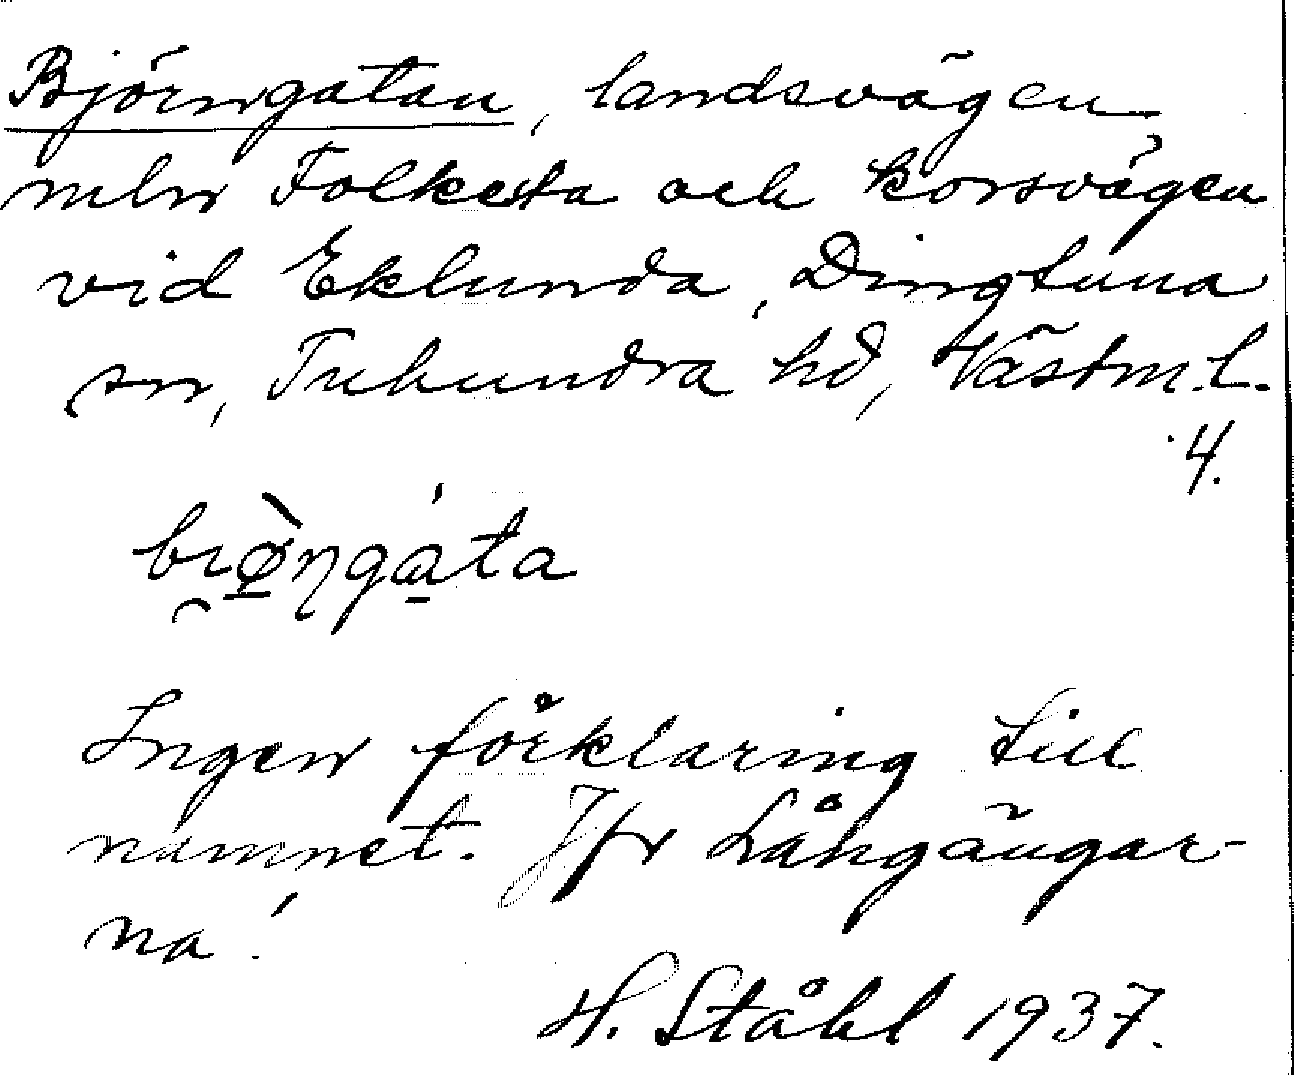 Björngatan, landsvägen
mln Folkesta och korsvägen
vid Eklunda, Dingtuna
sn, Tuhundra hd, Västm. l.
4.
bi̯ø̀ŋgáta
Ingen förklaring till
namnet. Jfr Långängar-
na!
H. Ståhl 1937.